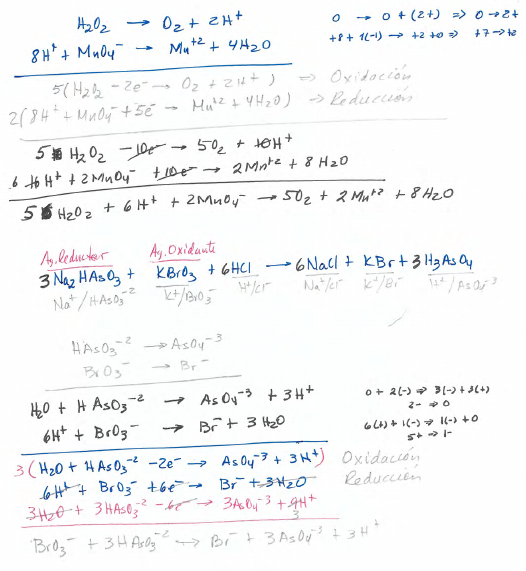 H₂O₂ → O₂ + 2H⁺
0 → 0 + (2+) ⇒ 0 → 2+
8H⁺ + MnO₄⁻ → Mn⁺² + 4H₂O
+8 + 1(-1) → +2 + 0 ⇒ +7 → +2
5(H₂O₂ - 2e⁻ → O₂ + 2H⁺) ⇒ Oxidación
2(8H⁺ + MnO₄⁻ + 5e⁻ → Mn⁺² + 4H₂O) ⇒ Reducción
5 H₂O₂ - 10e⁻ → 5O₂ + 10H⁺
6 16H⁺ + 2MnO₄⁻ + 10e⁻ → 2Mn⁺² + 8H₂O
5 H₂O₂ + 6H⁺ + 2MnO₄⁻ → 5O₂ + 2Mn⁺² + 8H₂O
Ag. Reductor Ag. Oxidante
3Na₂HAsO₃ + KBrO₃ + 6HCl → 6NaCl + KBr + 3H₃AsO₄
Na⁺/HAsO₃⁻² K⁺/BrO₃⁻ H⁺/Cl⁻ Na⁺/Cl⁻ K⁺/Br⁻ H⁺/AsO₄⁻³
HAsO₃⁻² → AsO₄⁻³
BrO₃⁻ → Br⁻
H₂O + HAsO₃⁻² → AsO₄⁻³ + 3H⁺
0 + 2(-) ⇒ 3(-) + 3(+)
2- ⇒ 0
6H⁺ + BrO₃⁻ → Br⁻ + 3H₂O
6(+) + 1(-) ⇒ 1(-) + 0
5+ ⇒ 1-
3(H₂O + HAsO₃⁻² - 2e⁻ → AsO₄⁻³ + 3H⁺) Oxidación
6H⁺ + BrO₃⁻ + 6e⁻ → Br⁻ + 3H₂O Reducción
3H₂O + 3HAsO₃⁻² - 6e⁻ → 3AsO₄⁻³ + 9H⁺
3
BrO₃⁻ + 3HAsO₃⁻² → Br⁻ + 3AsO₄⁻³ + 3H⁺